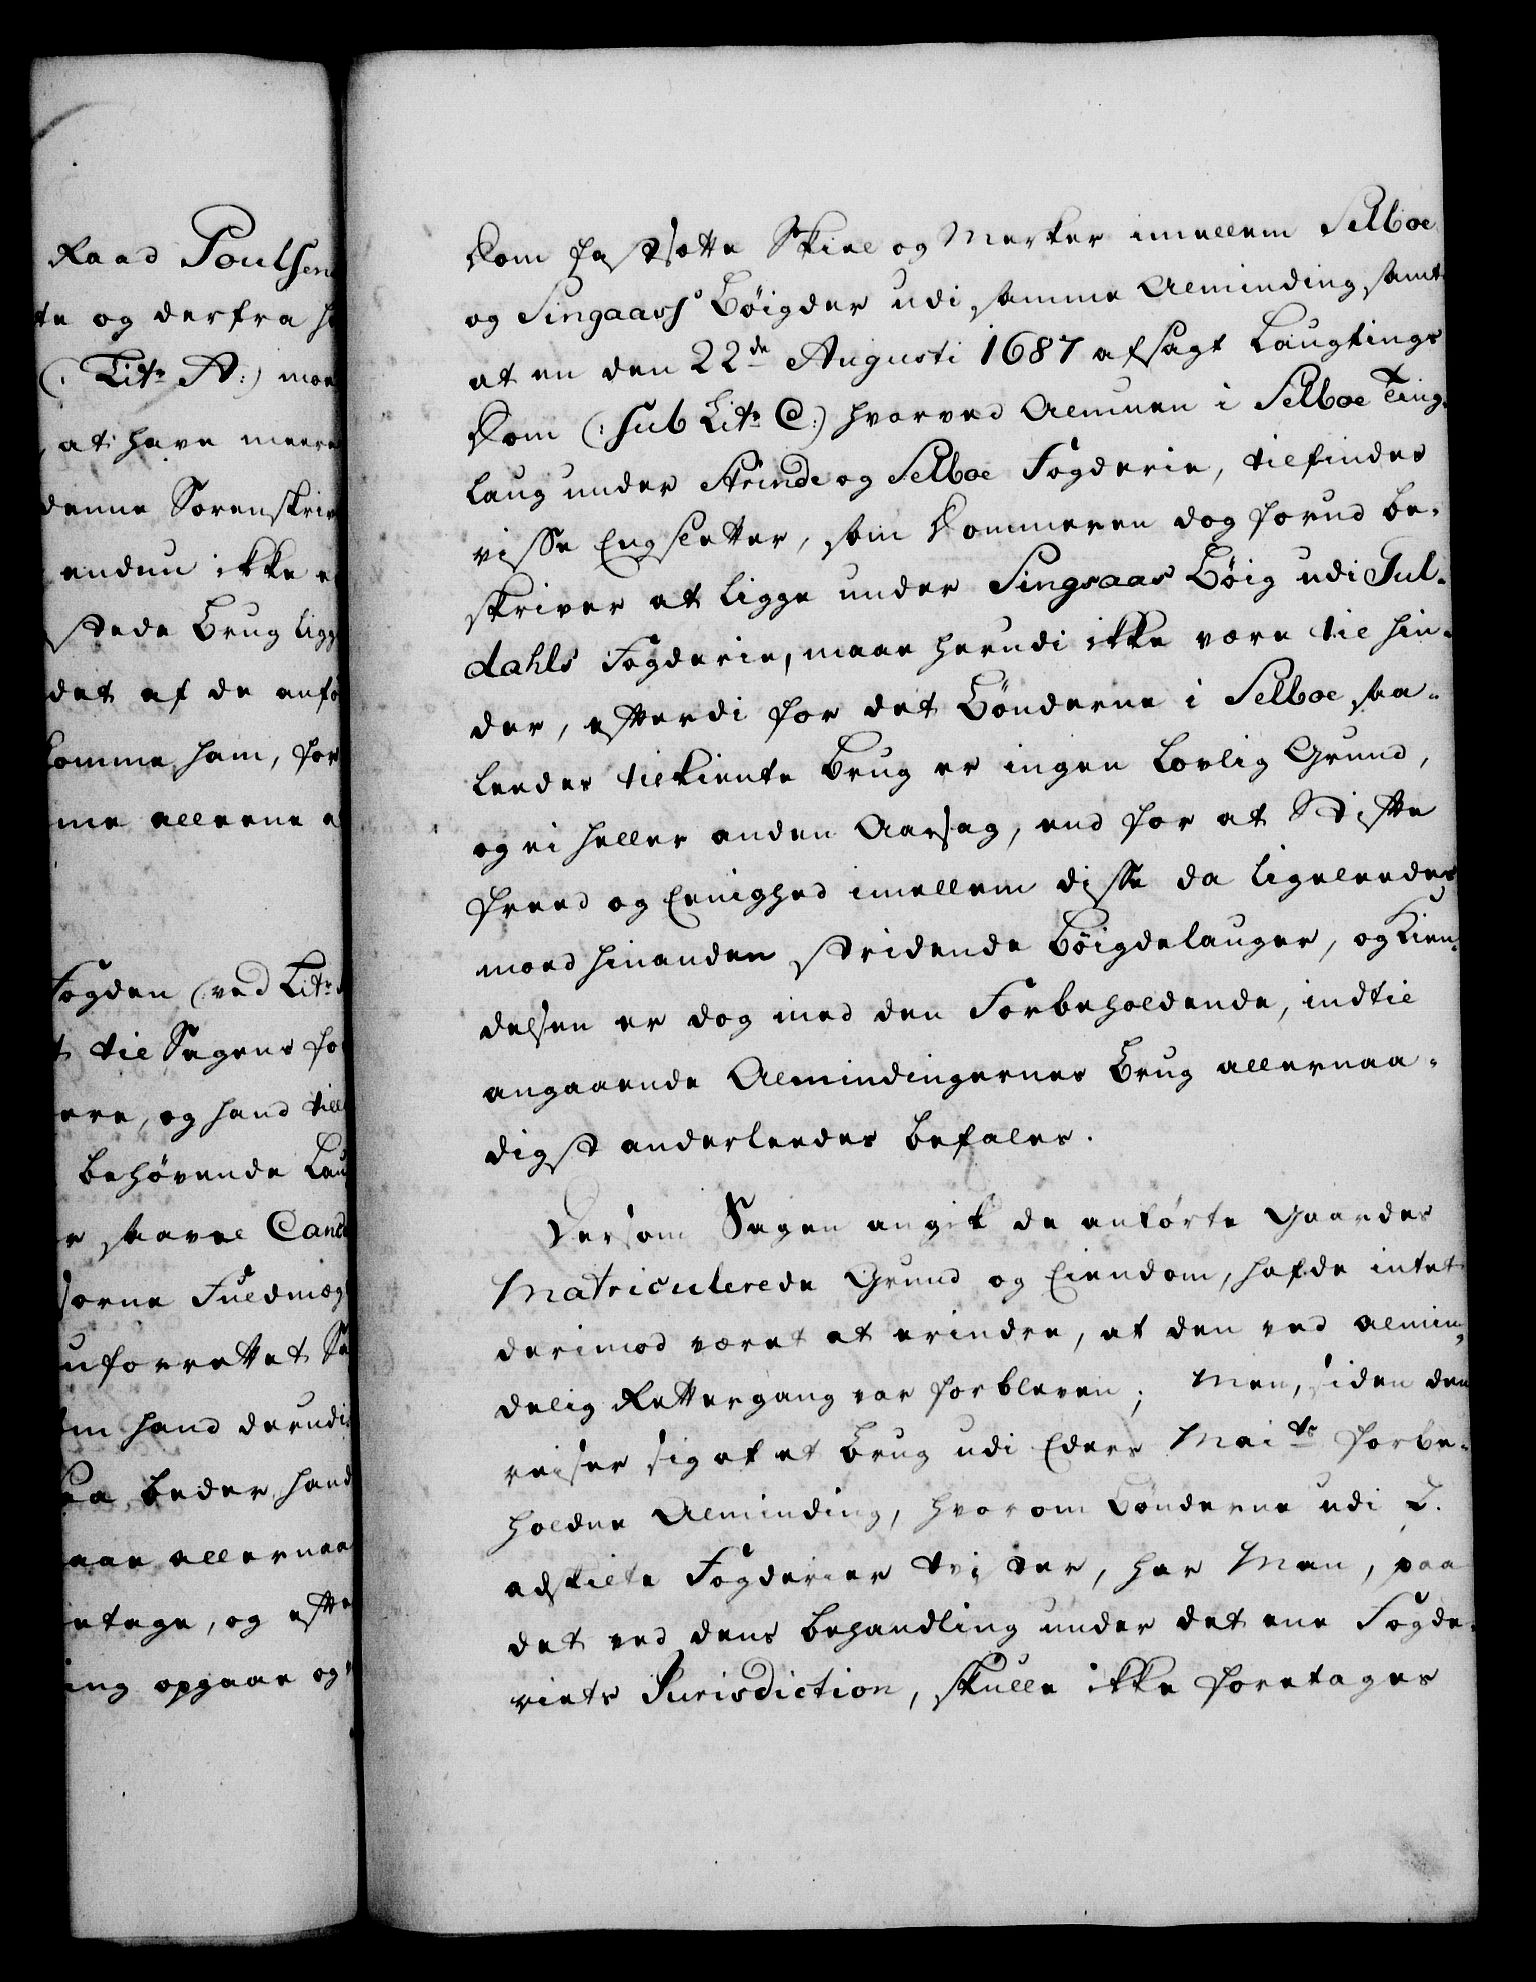 Raad Poulsen
te og derfra
(: Litr A:) moe
at have meere
denne Sorenskriv
endnu ikke
stede Brug ligg
det af de anfø
komme ham, for
me allerne
Fogden (: ved Litr
til Sagens fo
ere, og hand till
behøvende Lau
saavel Cand
Fuldmæg
uforrettet Sa
hand derudi
beder hand
allernaa
etage, og efte
ing opgaae og
Dom fastsatte Skiel og Merker imellem Selboe
og Singsaas Bøigder udi samme Alminding, samt
at en den 22de Augusti 1687 afsagt Laugtings
Dom (: sub Litr C:) hvorved Almuen i Selboe Ting-
laug under Strinde og Selboe Fogderie, tilfindes
visse Engsletter, som Dommeren dog forud be-
skriver at ligge under Singsaas Bøig udi Gul-
dahls Fogderie, maae herudi ikke være til hin-
der, efterdi for det Bønderne i Selboe saa-
leedes tilkiente Brug er ingen lovlig Grund,
og ei heller anden Aarsag, end for at Stifte
Freed og Eenighed imellem disse da ligeleedes
moed hinanden stridende Bøigdelauger, og Kien-
delsen er dog med den Forbeholdende, indtil
angaaende Almindingernes Brug allernaa-
digst anderleedes befales.
Dersom Sagen angik de anførte Gaardes
Matriculerede Grund og Eiendom, hafde intet
derimod været at erindre, at den ved almin-
delig Rettergang var forbleven; Men, siden den
reiser sig af et Brug udi Eders Maits forbe-
holdne Alminding, hvorom Bønderne udi 2.
adskilte Fogderier tvister, har Man, paa
det ved dens behandling under det ene Fogde-
riets Jurisdiction, skulle ikke foretages